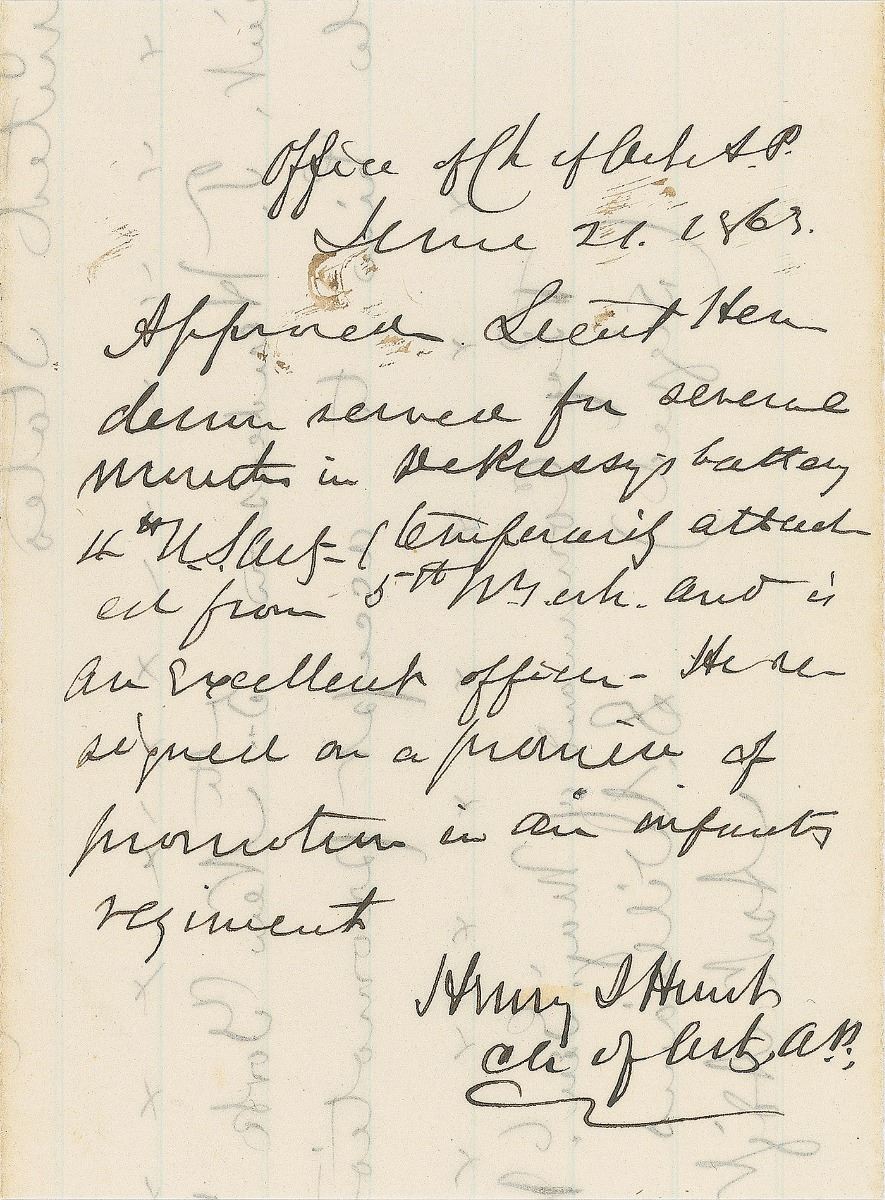 Office of Ch of Art. A.P.
June 21. 1863.
Approved. Lieut Hen
derson served for several
Months in DeRussy's battery
4th U.S. Art. (temporarily attach
ed from 5th N.Y. art. and is
an excellent officer - He re-
signed on a promise of
promotion in an infantry
regiment
Henry J Hunt
Ch of Art, A.P.